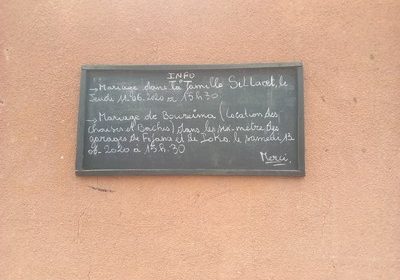 INFO
→ Mariage dans la famille Sillacet, le
Jeudi 11-06-2020 à 15h30
→ Mariage de Boureima (location des
chaises et Baches) dans les six-mètre des
garages de et de le samedi 13
06-2020 à 15h30
Merci